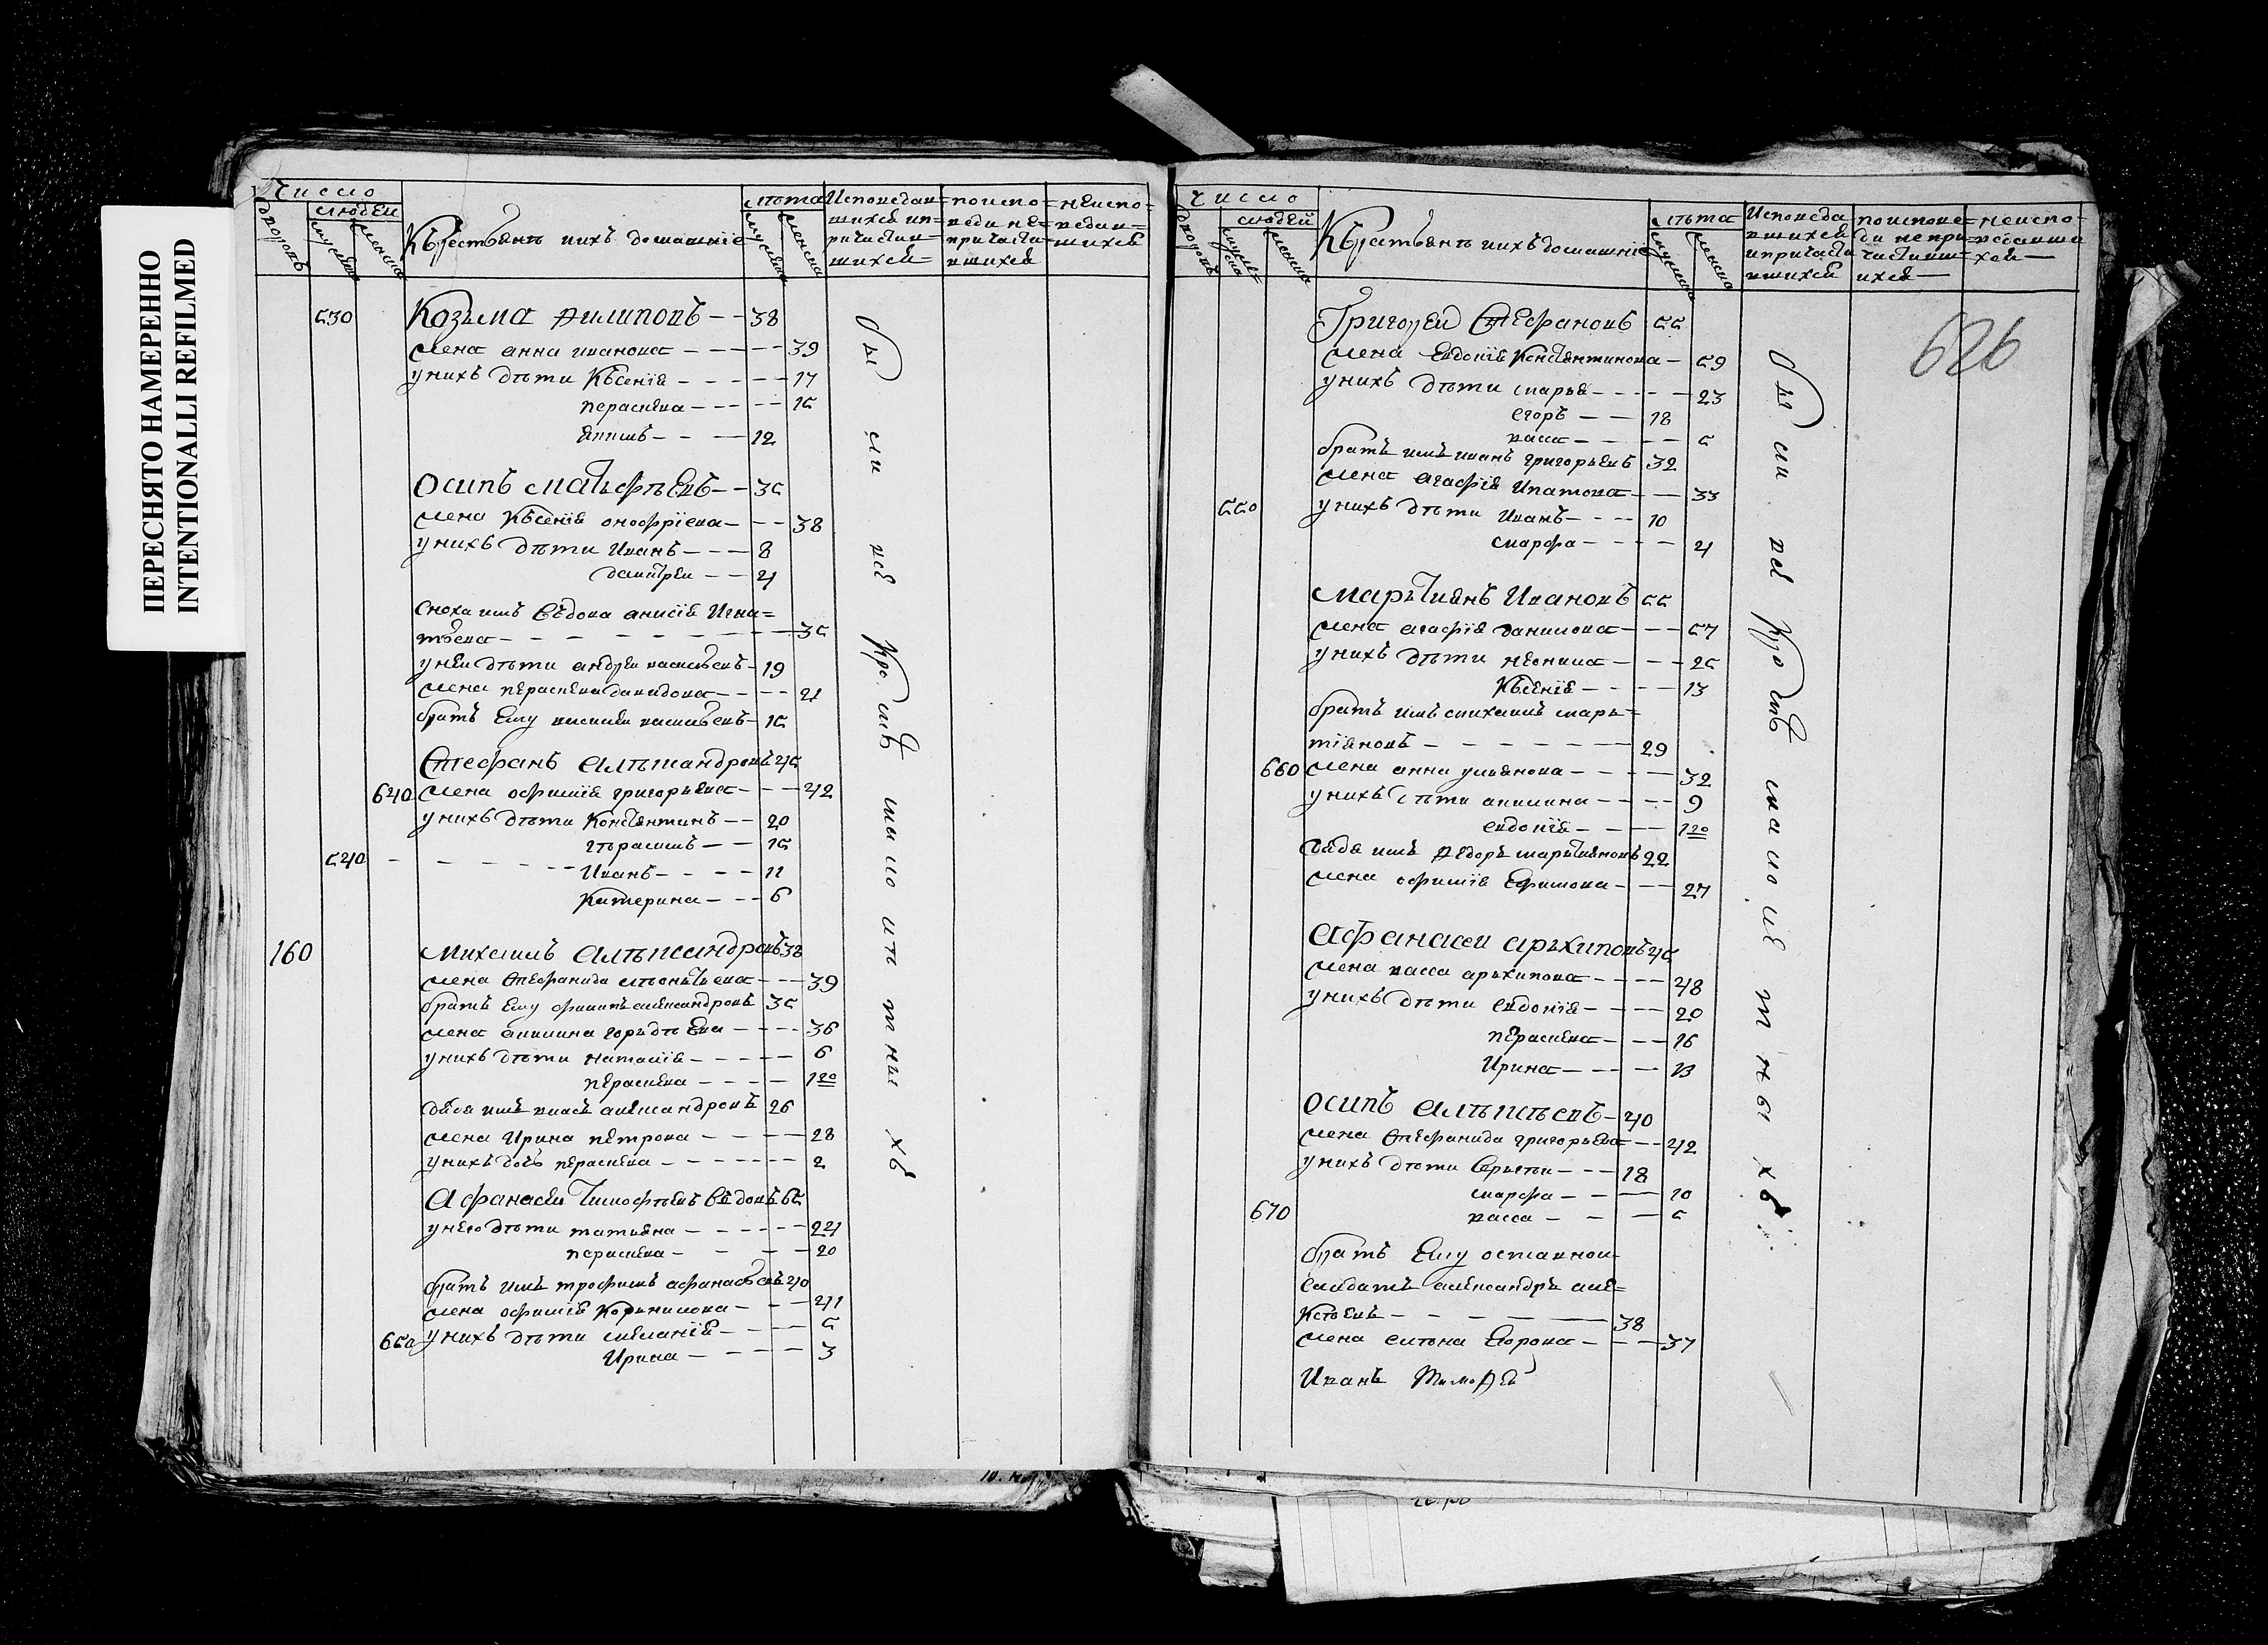 ПЕРЕСНЯТО НАМЕРЕННО
INTENTIONALLI REFILMED
Число
дворовъ
людей
мужеска
женска
Кърестьянѣ ихъ домашніе
лѣта
мужеска
женска
Исповедав=
шихся ип=
ричастив=
шихся=
поиспо=
веди не=
причасти=
вшихся
неиспо=
ведав=
шихся
530 Козьма Филиповъ – – 38
жена анна иванова – – – – – 39
унихъ дѣти Късенія – – – – – 17
пераскева – – – – – 15
яким – – – 12
осипъ матьфѣевъ – – 35
жена Късенія онофріева – – – 38
унихъ дѣти Иванъ – – – 8
дмитреи – – 4
сноха имъ въдова анисія Игна=
тьева – – – – – – – – 35
унеи дѣти андреи васильевъ – 19
жена пераскева давидова – – – – 21
братъ Ему василеи васильевъ – 15
Стефанъ алѣксандровъ 45
640 жена офимія григорьева – – – 42
унихъ дѣти Константинъ – – 20
гѣрасимъ – – 15
540 – – – – – – Иванъ – – – – 11
Катерина – – – 6
160 михаилъ алѣксандровъ 38
жена Стефанида лѣонтьева – – – 39
братъ Ему филипъ александровъ 35
жена акилина горьдѣева – – – – 36
унихъ дѣти наталія – – – – – 6
пераскева – – – – 1го
дядя имъ власъ александровъ 26
жена Ирина петрова – – – – 28
унихъ дочь пераскева – – – – – – 2
Афанасеи тимофѣевъ въдовъ 65
унего дѣти татияна – – – – – – 24
пераскева – – – – 20
братъ имъ трофимъ афанасьевъ 40
жена офимія Корнилова – – – 41
650 унихъ дѣти маланія – – – – 5
Ирина – – – – – 3
были все Кромѣ малолѣтныхъ
Число
дворовъ
людей
мужеска
женска
Кърестьянѣ ихъ домашніе
лѣта
мужеска
женска
Исповеда
вшихся
ипричасти
вшихся
поиспове=
ди непри=
частивш=
ихся
неиспо=
ведавши
хся
626
Григореи Стефановъ 55
жена Евдокія Константинова – 59
унихъ дѣти марья – – – – – 23
егоръ – – – 18
васса – – – – – 5
братъ имъ иванъ григорьевъ 32
жена агафія Ипатова – – – 33
550 унихъ дѣти Иванъ – – – – 10
марфа – – – – – 4
марьтиянъ Ивановъ 55
жена агафія данилова – – – – 57
унихъ дѣти неонила – – – – 25
Късенія – – – – 13
братъ имъ михаилъ марь=
тіяновъ – – – – – – – 29
660 жена анна улиянова – – – – 32
унихъ дѣти акилина – – – – 9
евдокія – – – – 1го
дядя имъ Федоръ марьтияновъ 22
жена офимія Ефимова – – – 27
афанасеи арьхиповъ 45
жена васса арьхипова – – – – 48
унихъ дѣти евдокія – – – – 20
пераскева – – – 16
Ирина – – – – 13
осипъ алѣксѣевъ – 40
жена Стефанида григорьева – – 42
унихъ дѣти – – – 18
марфа – – – 10
670 васса – – – 5
братъ Ему оставнои
салдатъ александръ але=
ксѣевъ – – – – – – 38
жена елѣна Егорова – – – 37
Иванъ Тимофеевъ
были все Кромѣ малолѣтныхъ